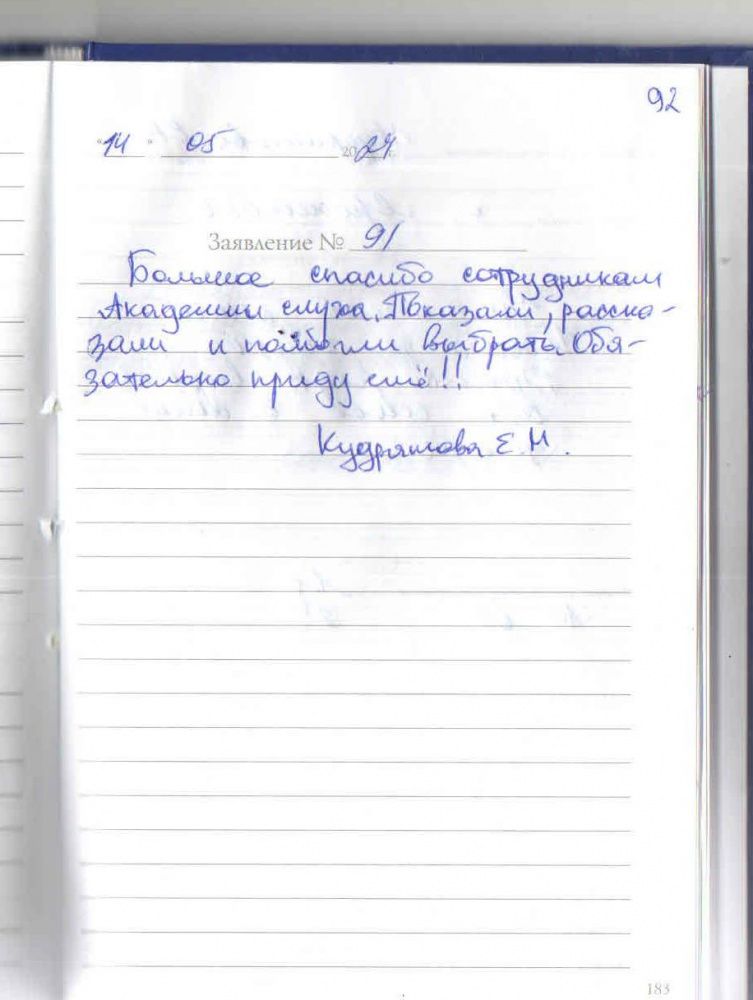 92
"14" 05 2024 г.
Заявление № 91
Большое спасибо сотрудникам
Академии слуха. Показали, расска-
зали и помогли выбрать. Обя-
зательно приду ещё!!
Кудряшова Е. Н.
183